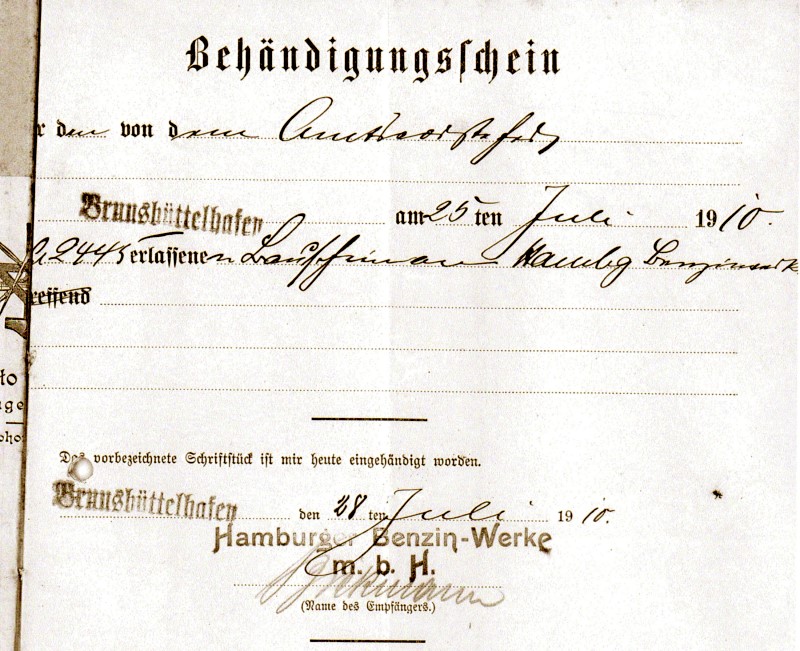 Behändigungsschein
r den von dem Amtsvorsteher
Brunsbüttelhafen am 25 ten Juli 1910.
2445 erlassenen Bauschein Hambg Benzinwerke
reffend
to
ge
Das vorbezeichnete Schriftstück ist mir heute eingehändigt worden.
Brunsbüttelhafen den 28 ten Juli 1910.
Hamburger Benzin-Werke
m. b. H.
(Name des Empfängers.)